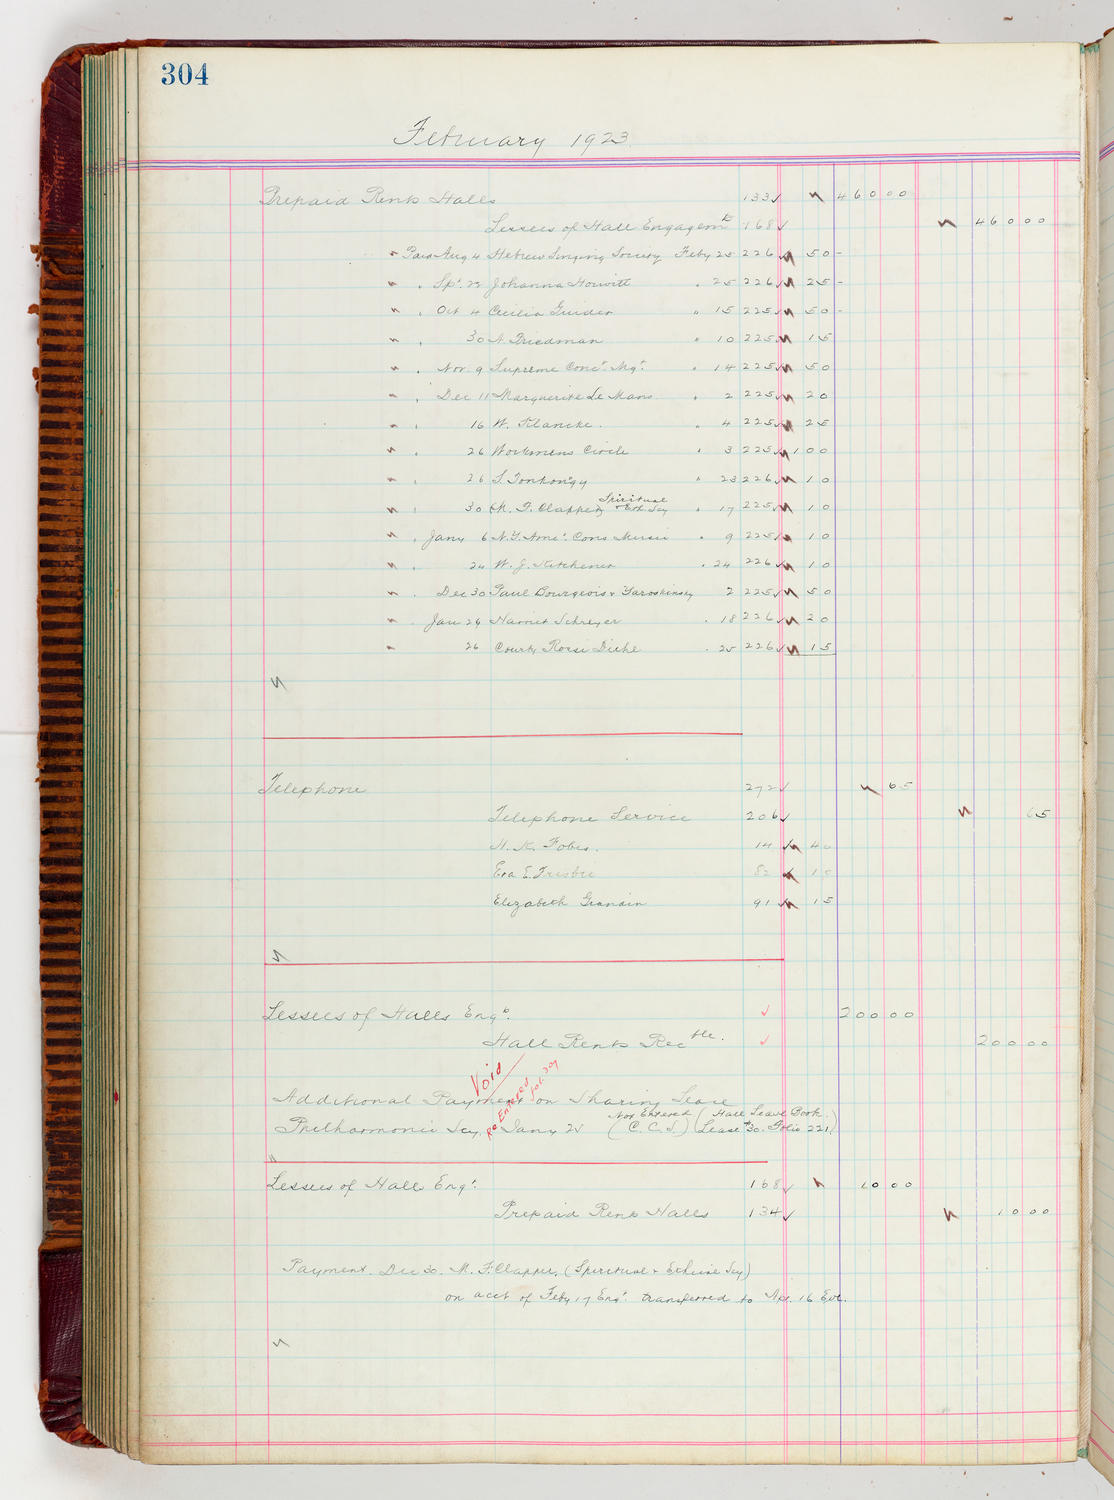 304
February 1923
Prepaid Rents Halls 133 ✓ 460 00
Lessees of Hall Engagemts 168 ✓ 460 00
" Paid Aug 4 Hebrew Singing Society Feby 25 226 ✓ 50 -
" " Sp. 22 Johanna Horwitt " 25 226 ✓ 25 -
" " Oct 4 Cecilia Guider " 15 225 ✓ 50 -
" " 30 A. Friedman " 10 225 ✓ 15
" " Nov. 9 Supreme Conct. Mgt. " 14 225 ✓ 50
" " Dec 11 Marguerite Le Mans " 2 225 ✓ 20
" " 16 W. Klancke. " 4 225 ✓ 25
" " 26 Workmens Circle " 3 225 ✓ 100
" " 26 S. Tonkonogy " 23 226 ✓ 10
" " 30 M. F. Clapper Spiritual + Eth. Scy " 17 225 ✓ 10
" " Jany 6 N.Y. Amer. Cons Music " 9 225 ✓ 10
" " 24 W. J. Kitchener " 24 226 ✓ 10
" " Dec 30 Paul Bourgeois + Yaroshinsky 2 225 ✓ 50
" " Jan 24 Harriet Schreyer " 18 226 ✓ 20
" 26 County Rossi Diehl " 25 226 ✓ 15
Telephone 272 ✓ 65
Telephone Service 206 ✓ 65
N. K. Fobes. 14 ✓ 40
Eva E. Frisbie 82 10
Elizabeth Grandin 91 ✓ 15
Lessees of Halls Engts. ✓ 200 00
Hall Rents Recble. ✓ 200 00
Void
Re Entered fol. 309
Additional Payment on Sharing Lease
Philharmonic Scy. Jany 25 Not Entered (C. C. S.) (Hall Lease Book. Lease #30. Folio 221)
Lessees of Hall Engt. 168 ✓ 10 00
Prepaid Rents Halls 134 ✓ 10 00
Payment. Dec 30. M. F. Clapper. (Spiritual + Ethical Scy)
on acct of Feby 17 Engt. transferred to Apr. 16 Eve.